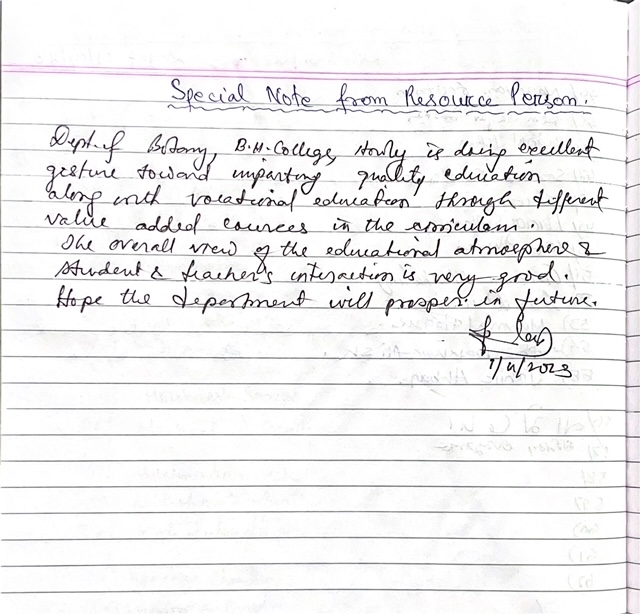 Special Note from Resource Person.
Dept. of Botany, B.H. College, Howly is doing excellent
gesture toward imparting quality education
along with vocational education through different
value added cources in the curriculam.
The overall view of the educational atmosphere &
student & teacher's interaction is very good.
Hope the department will prosper in future.